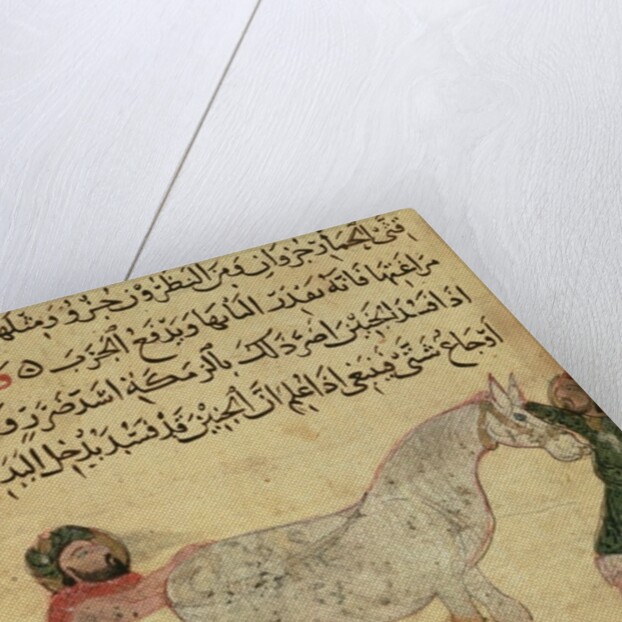 قثى الحمار جزوان ومن النطرون جزو ومثله
مراغتها فانه يعدد البانها ويدفع الجرب
اذا فسد الجنين اضر ذلك بالرمكة اشد ضرر و
اوجاع شتى فينبغى اذا اعلم ان الجنين قد فسد يدخل اليد